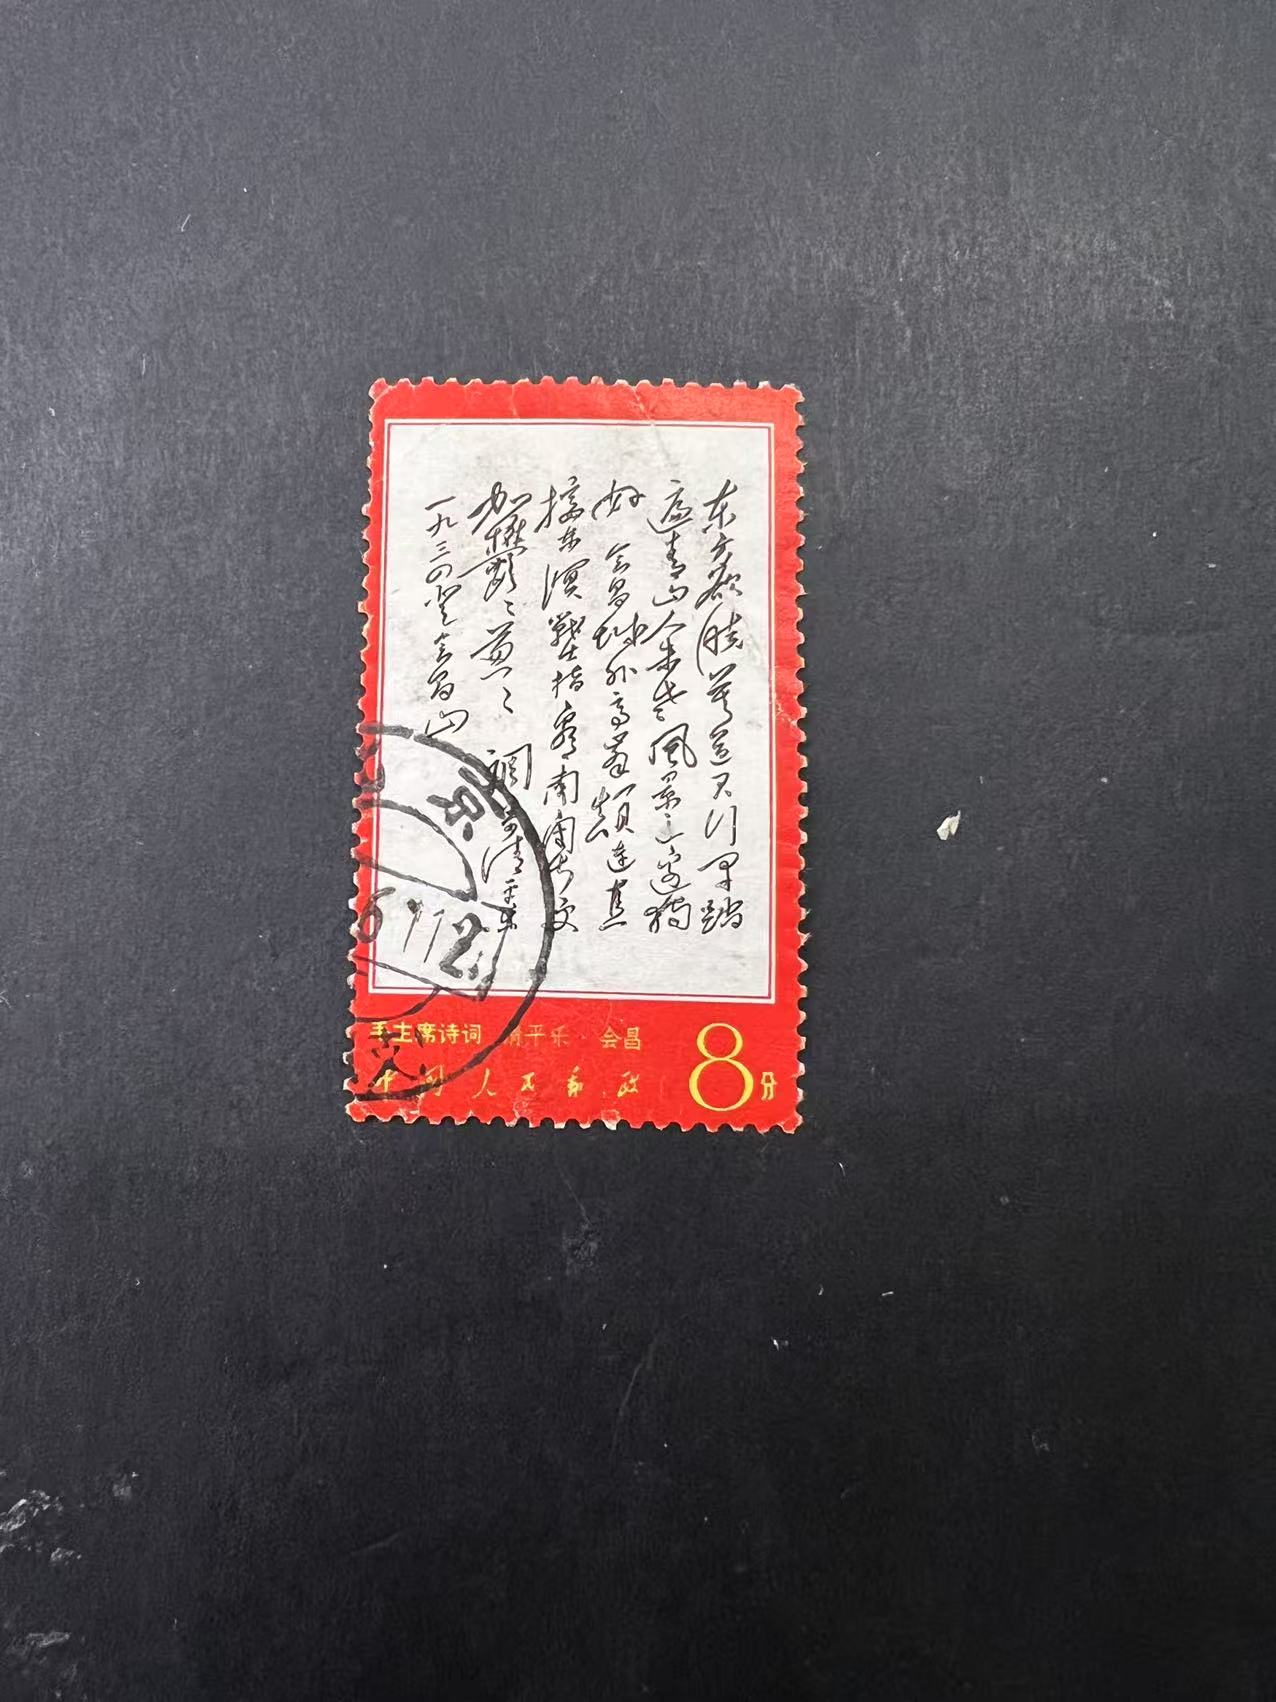 东方欲晓莫道君行早踏
遍青山人未老风景这边独
好 会昌城外高峯颠连直
接东溟戰士指看南粤更
加欝〻葱〻 調寄清平乐
一九三四登会昌山
京
毛主席诗词 清平乐·会昌
中国人民邮政
8分